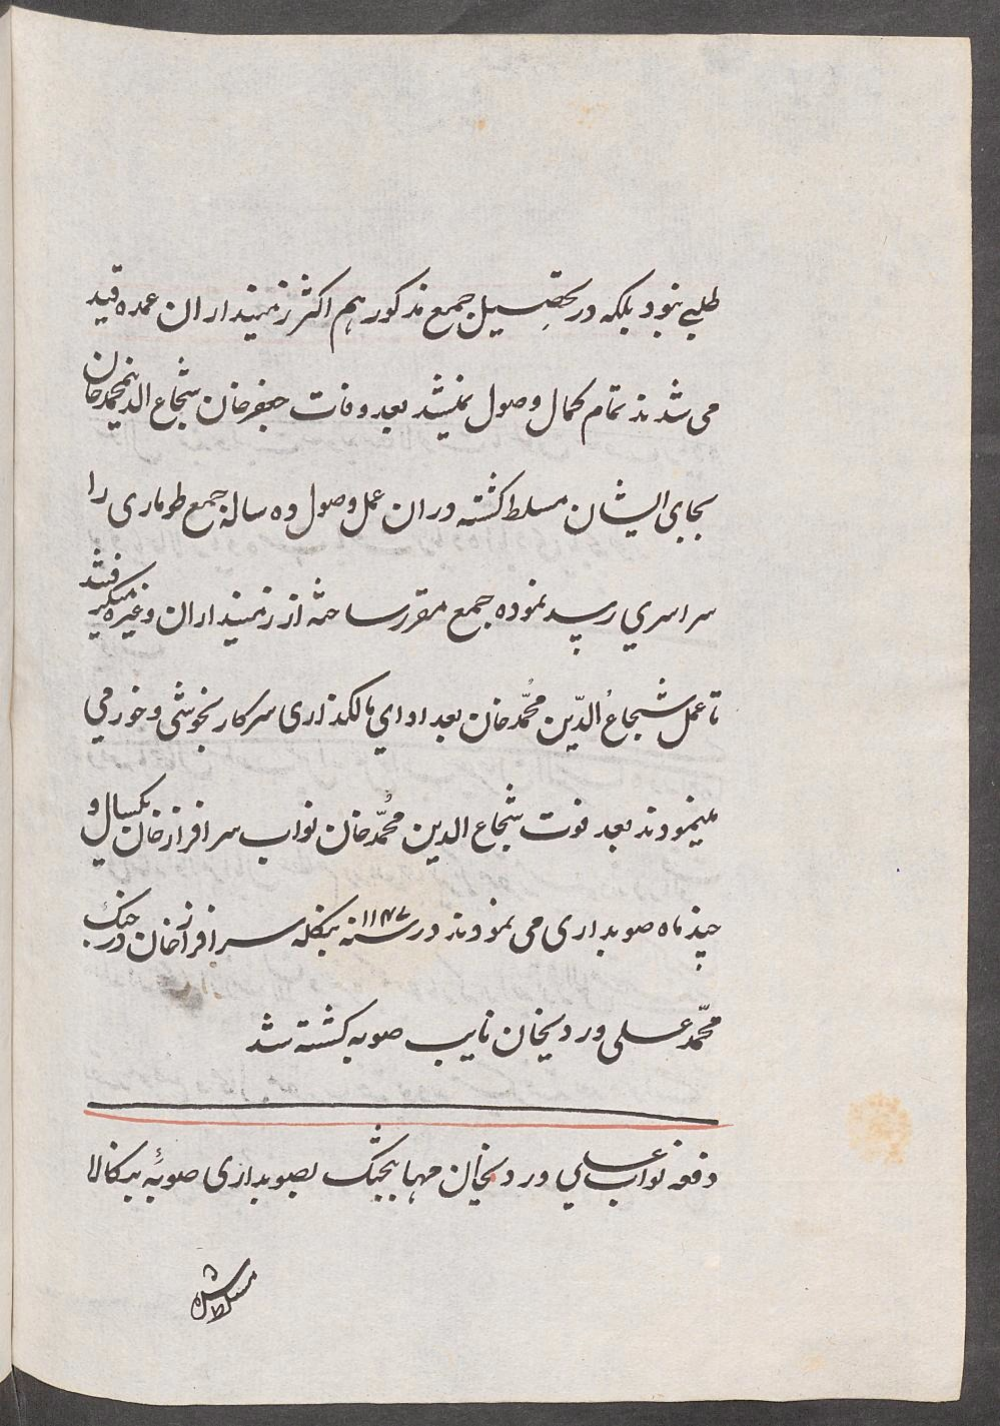 طلبی نبود بلکه در تحصیل جمع مذکور هم اکثر زمینداران عمده قید
می شدند تمام کمال وصول نمیشد بعد وفات جعفرخان شجاع الدین محمد خان
بجای ایشان مسلط کشته دران عمل وصول ده ساله جمع طوماری را
سراسری رسد نموده جمع مقرر ساخته از زمینداران وغیره میکیرفتند
تا عمل شجاع الدّین محمّد خان بعد ادای مالکذاری سرکار بخوشی و خورمی
مینمودند بعد فوت شجاع الدین محمّد خان نواب سرافراز خان یکسال و
چند ماه صوبداری می نمودند در سنه ۱۱۴۷ بنکله سرافراز خان در جنک
محمّد علی وردیخان نایب صوبه کشته شد
دفعه نواب علی وردیخان مهابتجنک بصوبداری صوبهٔ بنکالا
مسلط شده